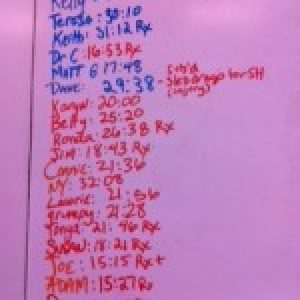 Kelly
Teresa: 30:10
Keith: 31:12 Rx
Dr C 16:53 Rx
MATT G 17:48
Dave: 29:38 -
Kanya: 20:00
Betty: 25:20
Ronda: 26:38 Rx
Jim: 18:43 Rx
Connie: 21:36
NY: 32:08
Laurie: 21:56
grumpy: 21:28
Tonya: 21:46 Rx
Susan: 18:21 Rx
JOE: 15:15 Rx+
ADAM: 15:27 Rx